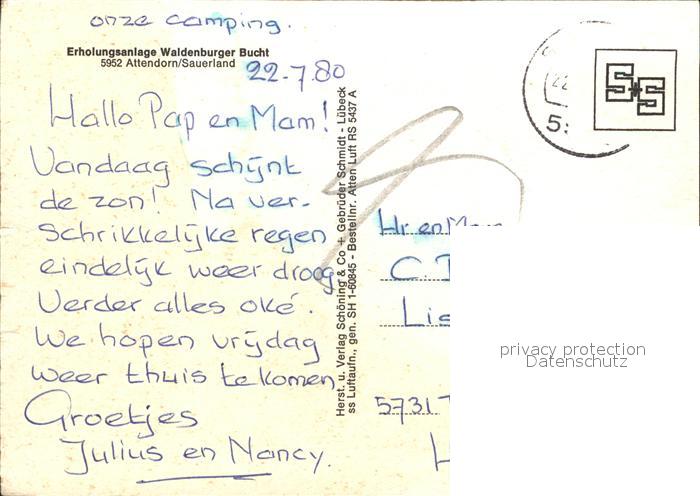 onze camping.
Erholungsanlage Waldenburger Bucht
5952 Attendorn/Sauerland
22-7-80
Hallo Pap en Mam!
Vandaag schijnt
de zon! Na ver-
schrikkelijke regen
eindelijk weer droog
Verder alles oké.
We hopen vrijdag
weer thuis te komen.
Groetjes
Julius en Nancy.
Herst. u. Verlag Schöning & Co + Gebrüder Schmidt - Lübeck
ss Luftaufn., gen. SH 1-60845 - Bestellnr. Atten Luft RS 5437 A
22
5:
S+S
Hr. en
C.
5731
privacy protection
Datenschutz